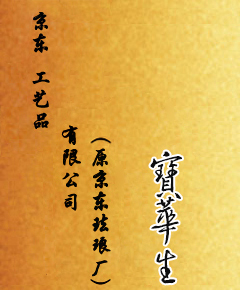 京东 工艺品
有限公司
(原京东珐琅厂)
寶華生